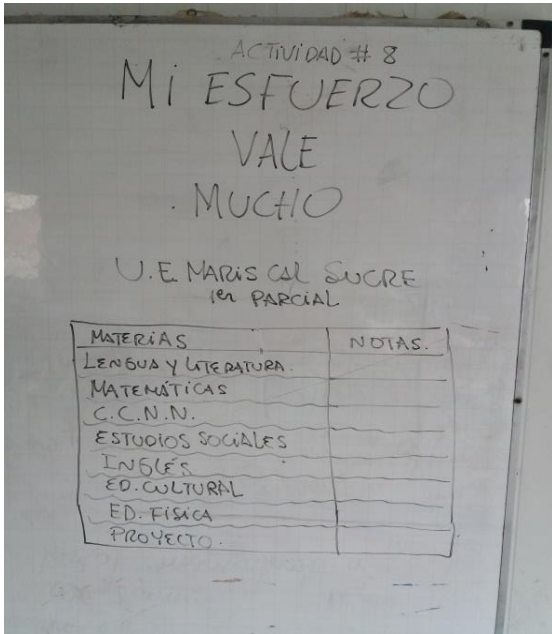 ACTIVIDAD # 8
Mi ESFUERZO
VALE
MUCHO
U.E. MARISCAL SUCRE
1er PARCIAL
MATERIAS NOTAS.
LENGUA Y LITERATURA.
MATEMÁTICAS
C.C.N.N.
ESTUDIOS SOCIALES
INGLÉS
ED. CULTURAL
ED. FISICA
PROYECTO.